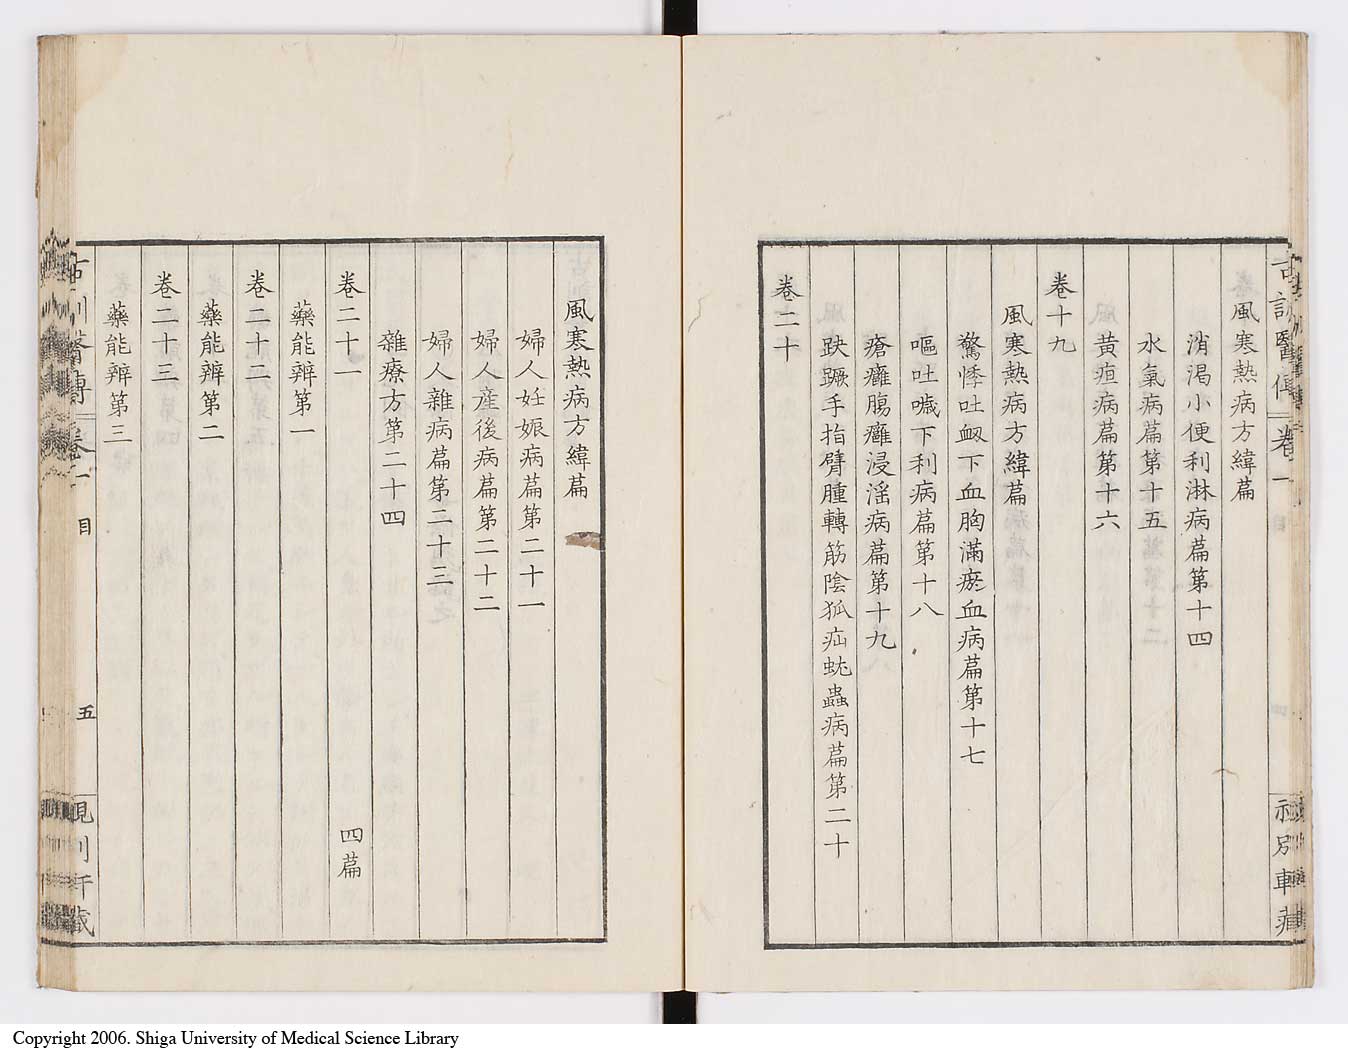 風寒熱病方緯篇
消渇小便利淋病篇第十四
水氣病篇第十五
黄疸病篇第十六
卷十九
風寒熱病方緯篇
驚悸吐衂下血胸滿瘀血病篇第十七
嘔吐噦下利病篇第十八
瘡癰腸癰浸淫病篇第十九
趺蹶手指臂腫轉筋陰狐疝蚘蟲病篇第二十
卷二十
風寒熱病方緯篇
婦人妊娠病篇第二十一
婦人産後病篇第二十二
婦人雜病篇第二十三
雜療方第二十四
卷二十一 四篇
藥能辨第一
卷二十二
藥能辨第二
卷二十三
藥能辨第三
古訓醫傳 卷一 目 五
Copyright 2006. Shiga University of Medical Science Library